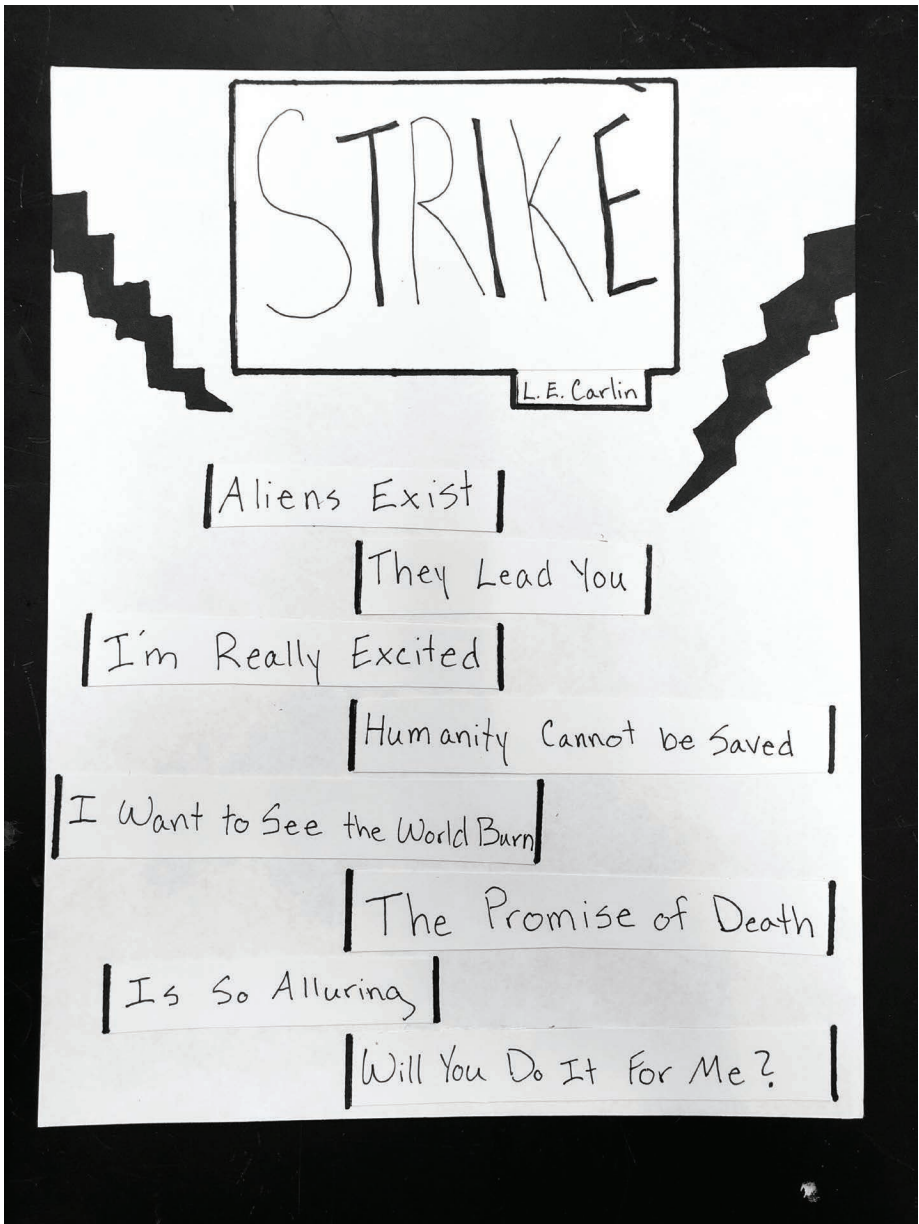 STRIKE
L. E. Carlin
Aliens Exist
They Lead You
I'm Really Excited
Humanity Cannot be Saved
I Want to See the World Burn
The Promise of Death
Is So Alluring
Will You Do It For Me?